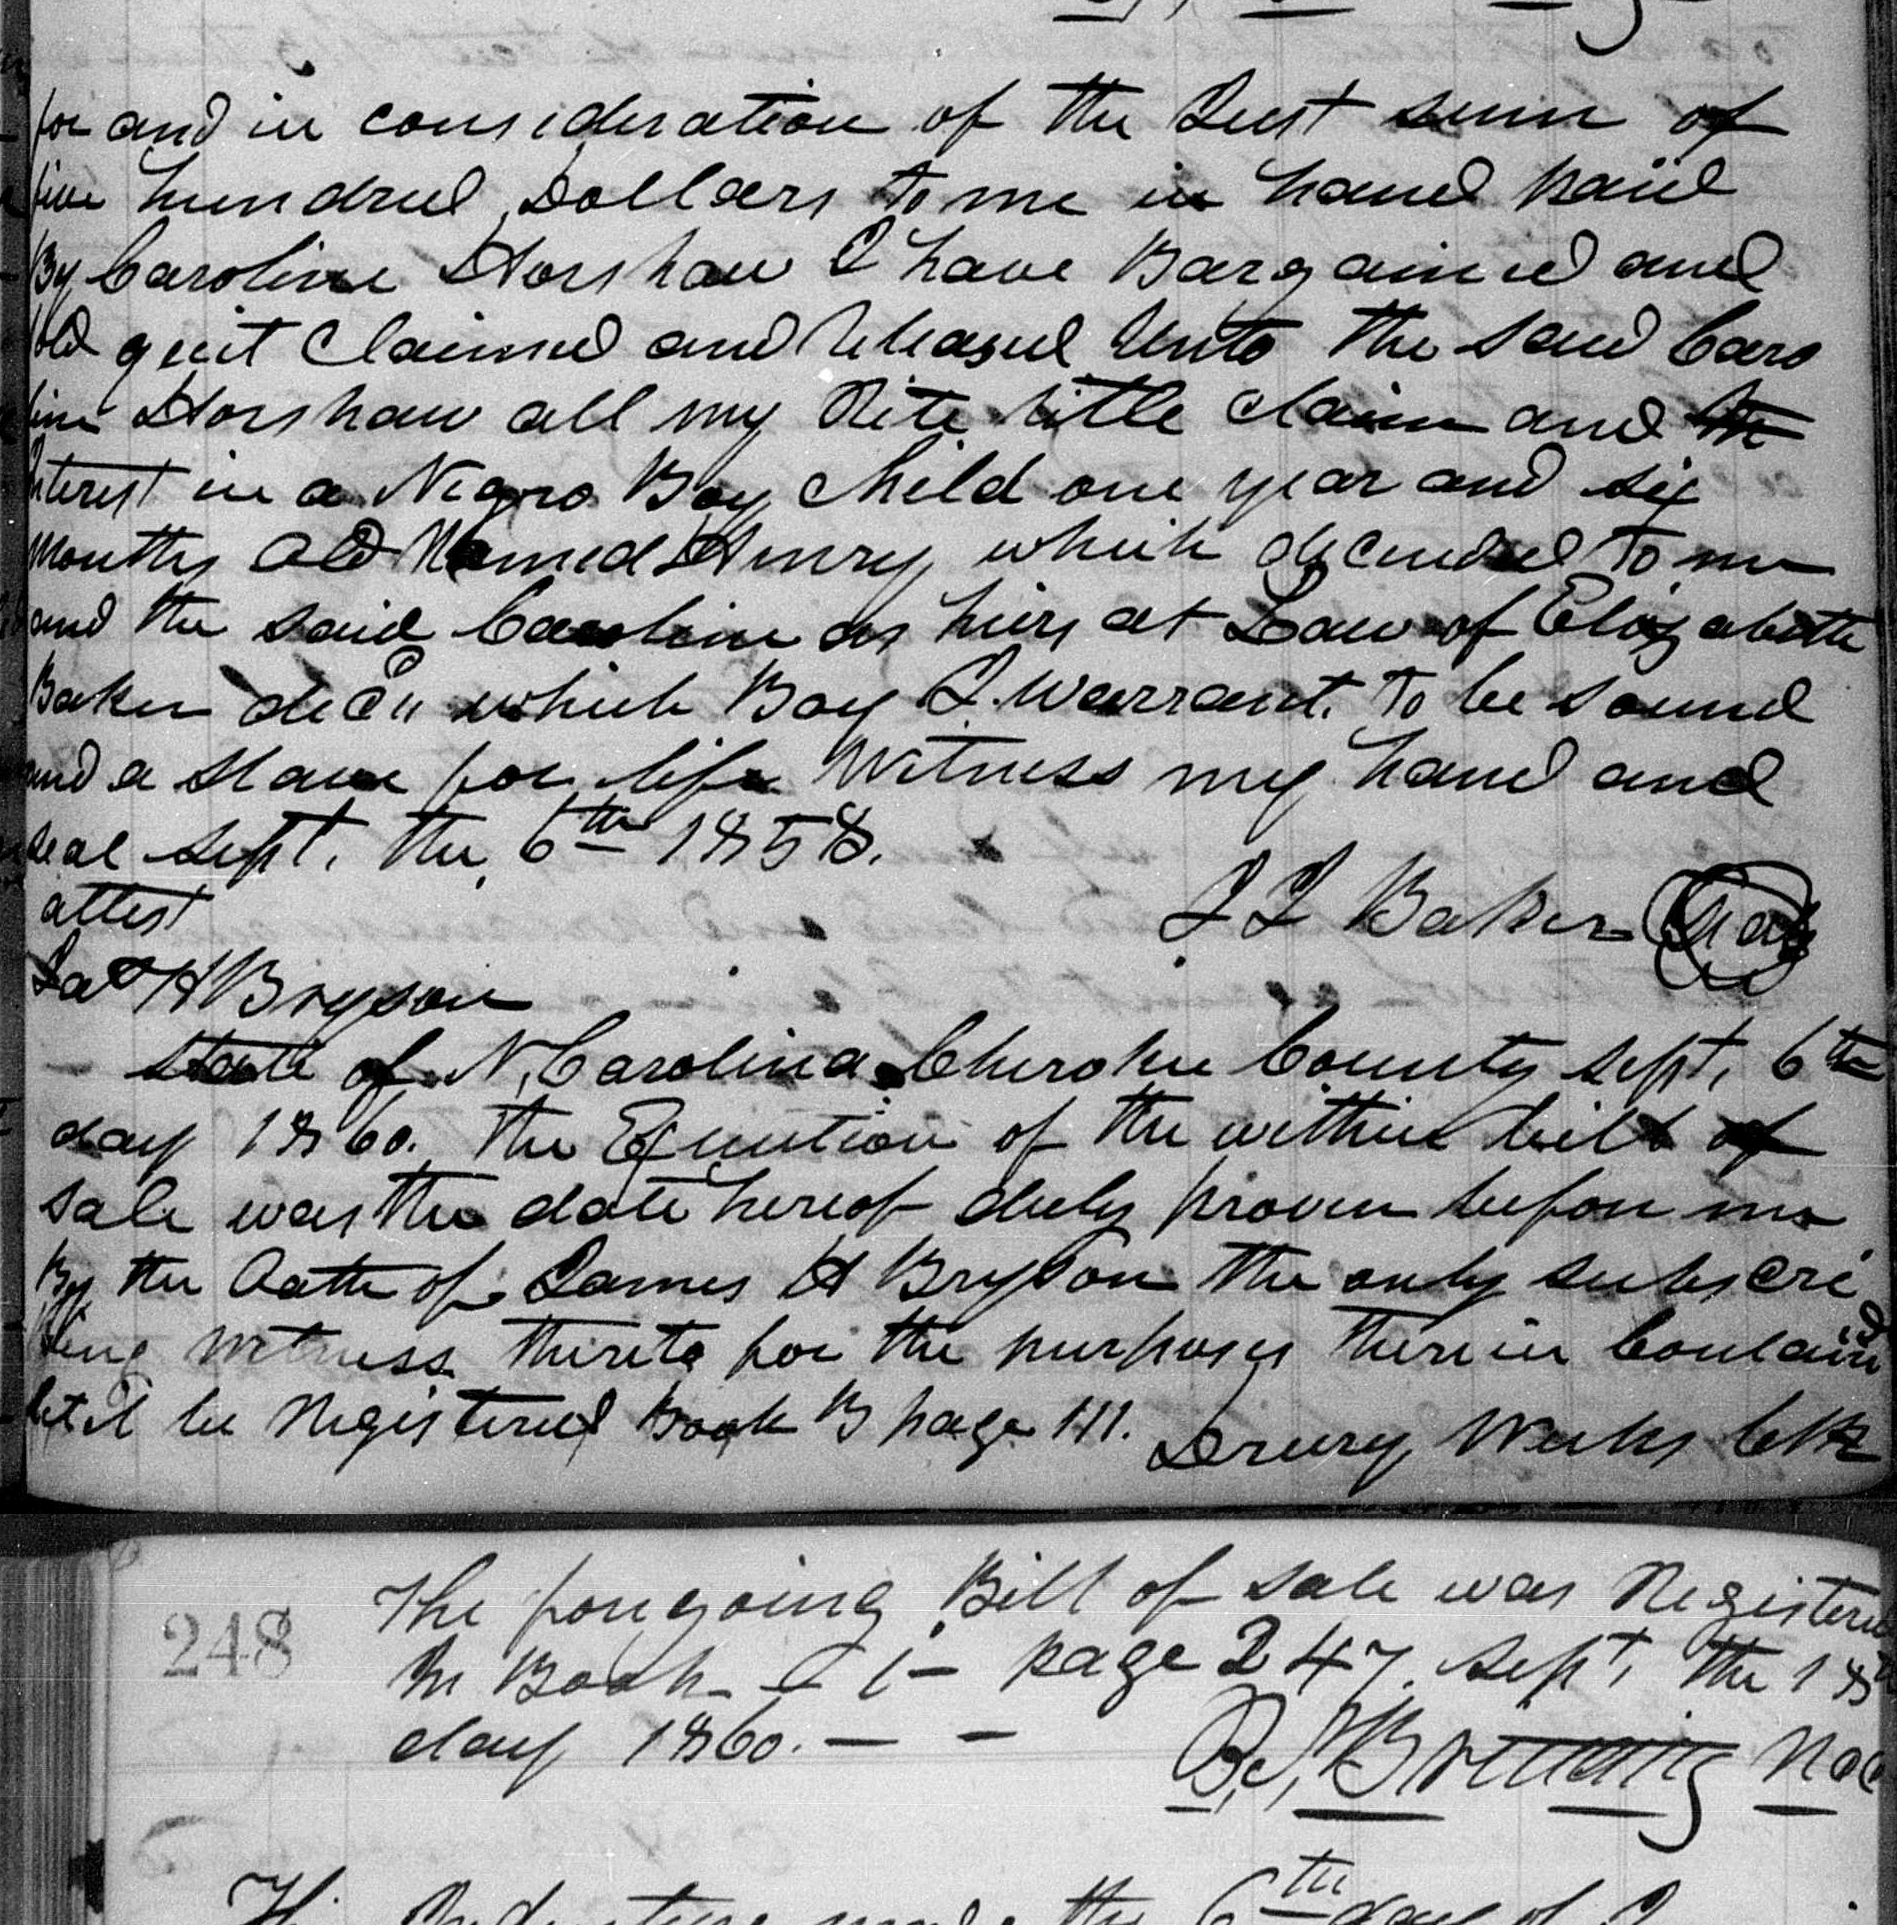 for and in consideration of the Just sum of
five hundred Dollars to me in hand paid
By Caroline Horshaw I have Bargained and
sold quit Claimed and Released Unto the said Caro
line Horshaw all my Rite title Claim and the
Interest in a Negro Boy Child one year and six
months old Named Henry which decended to me
and the said Caroline as hiers at Law of Elizabeth
Baker decd which Boy I warrant to be sound
and a slave for life Witness my hand and
seal Sept. the 6th 1858.
attest
J J Baker Seal
Jas H Bryson
State of N, Carolina Cherokee County Sept, 6th
day 1860. The Execution of the within bill of
sale was the date hereof duly proven before me
By the Oath of James H Bryson the only subscri
bing witness thereto for the purposes therein Containd
let it be Registered Book B page 111. Drury Weeks Clk
248
The foregoing Bill of sale was Registered
In Book page 247. Sept, the 18th
day 1860. — —
This Indenture made the 6th day of